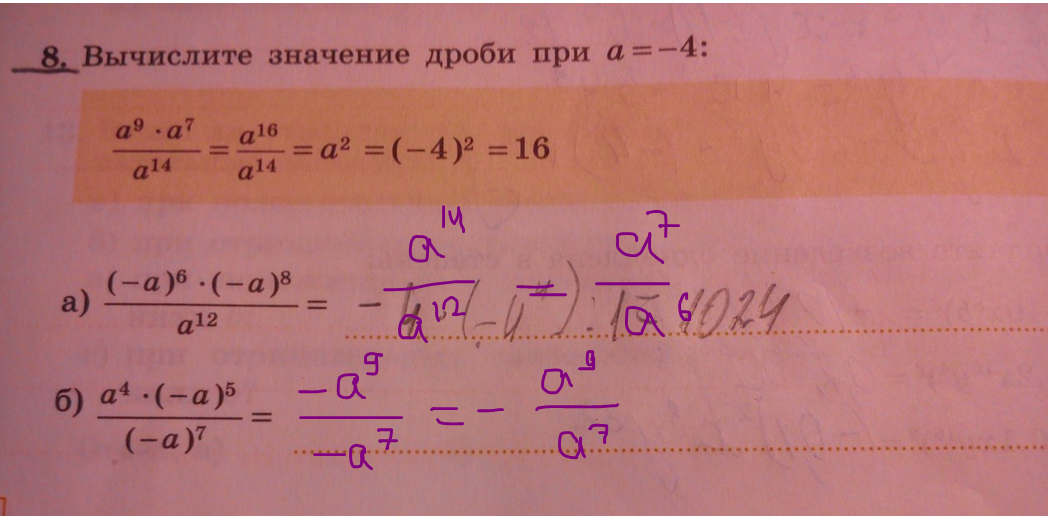 8. Вычислите значение дроби при a = −4:
a⁹ · a⁷ / a¹⁴ = a¹⁶ / a¹⁴ = a² = (−4)² = 16
а) (−a)⁶ · (−a)⁸ / a¹² = − a¹⁴ / a¹² = a⁷ / a⁶ 1024
б) a⁴ · (−a)⁵ / (−a)⁷ = −a⁹ / −a⁷ = − a⁹ / a⁷